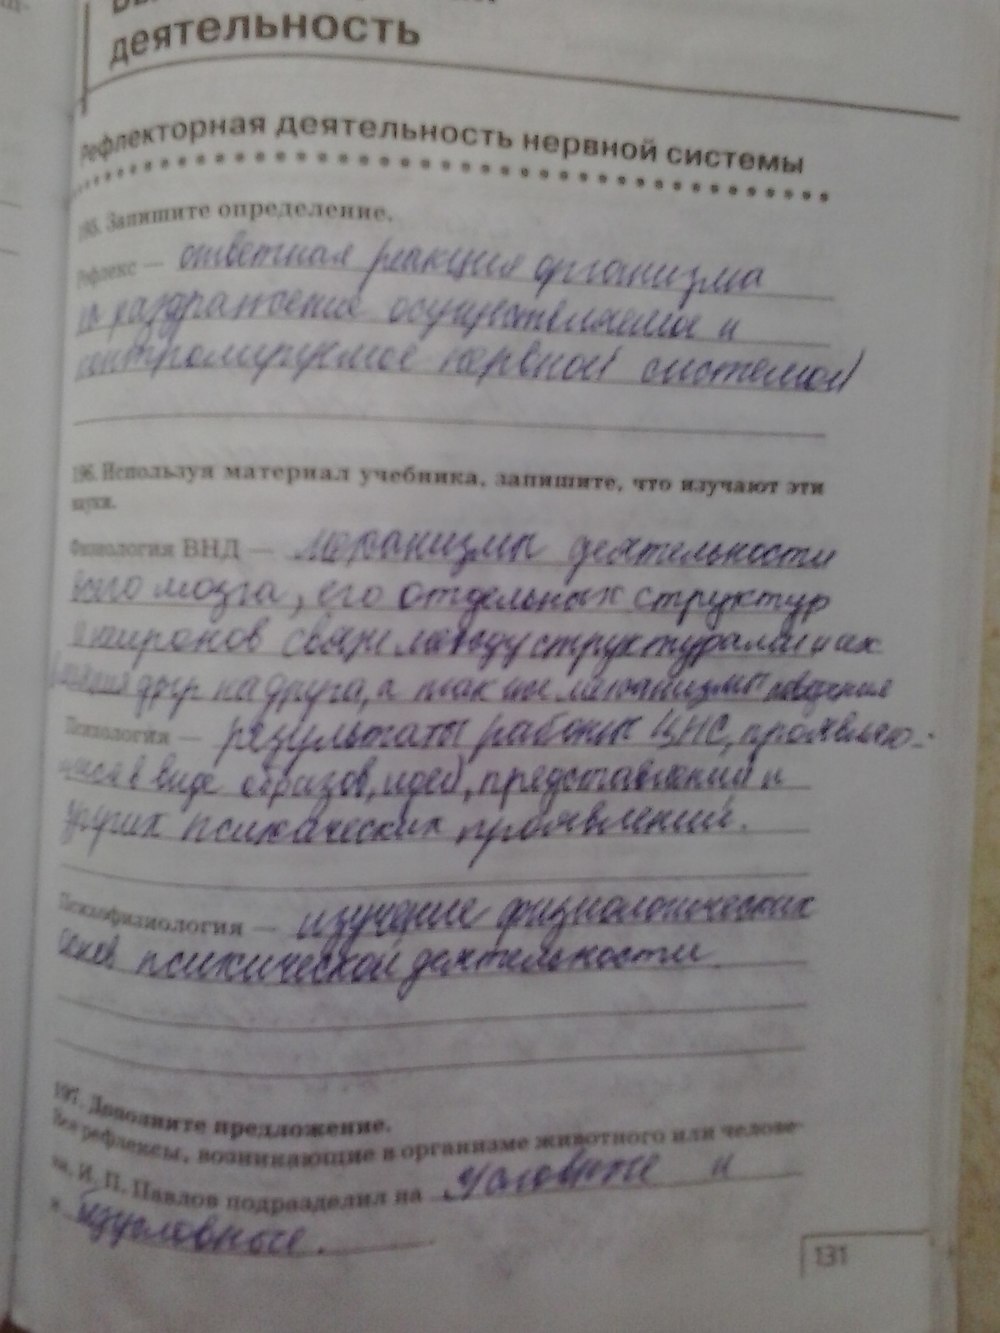 деятельность
Рефлекторная деятельность нервной системы
195. Запишите определение.
Рефлекс — ответная реакция организма
на раздражение осуществляемая и
контролируемое нервной системой
196. Используя материал учебника, запишите, что изучают эти
науки.
Физиология ВНД — механизмы деятельности
всего мозга, его отдельных структур
и нейронов связи между структурами и их
влияния друг на друга, а так же механизмы поведения
Психология — результаты работы ЦНС, проявляю-
щиеся в виде образов, идей, представлений и
других психических проявлений.
Психофизиология — изучение физиологических
основ психической деятельности
197. Дополните предложение.
Все рефлексы, возникающие в организме животного или челове-
ка, И. П. Павлов подразделил на условные и
и безусловные.
131